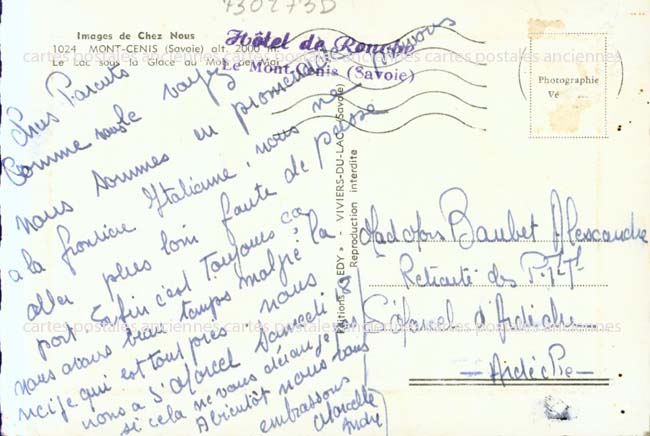 730273D
Images de Chez Nous
1024 MONT-CENIS (Savoie) alt. 2000 m.
Le Lac sous la Glace au Mois de Mai
Hôtel de Ronche
Le Mont-Cenis (Savoie)
Photographie
Vé
cartes postales anciennes cartes postales anciennes cartes postales anciennes
Chers Parents
Comme vous le voyez
nous sommes en promenade
à la frontière Italienne, nous ne pouvons
aller plus loin faute de passe
port. Enfin c'est toujours ça
nous avons beau temps malgré la
neige qui est tout près. nous
nous à St Marcel Samedi
si cela ne vous dérange pas
A bientôt nous vous
embrassons
Marcelle
André
Éditions « EDY » - VIVIERS-DU-LAC (Savoie)
Reproduction interdite
Baubet Alexandre
Retraité des P.T.T.
St Marcel d'Ardèche
-Ardèche-
cartes postales anciennes cartes postales anciennes cartes postales anciennes